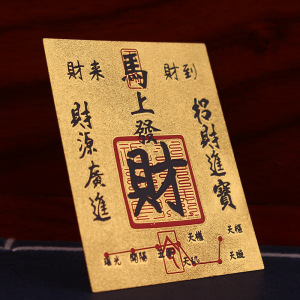 財来 財到
馬上發
財
招財進寶
財源廣進
天權
天璇
天璣
開陽